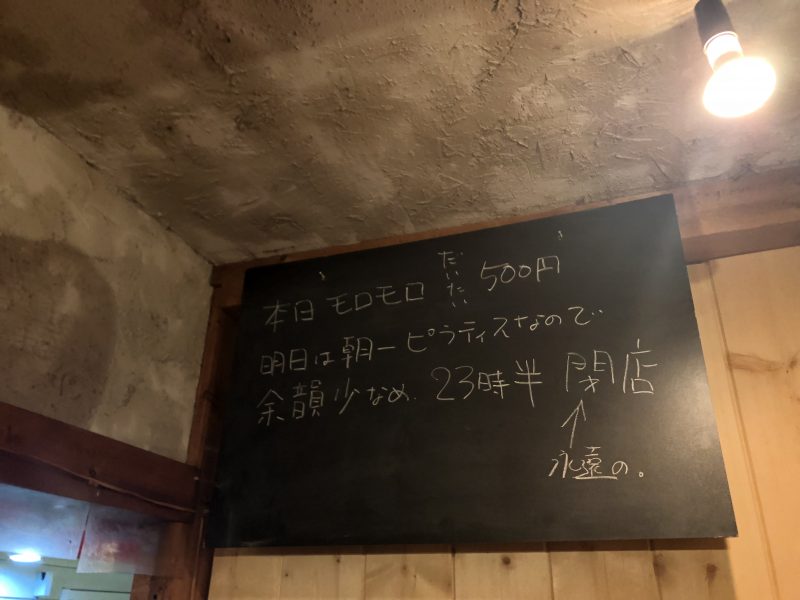 本日 モロモロ だいたい 500円
明日は朝一ピラティスなので
余韻少なめ. 23時半 閉店
↑
永遠の。